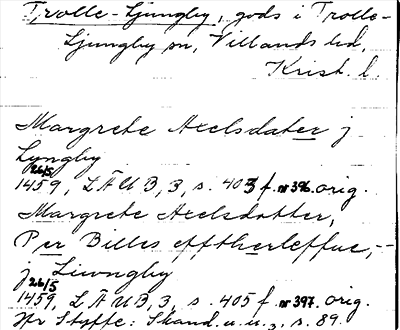 Trolle-Ljungby, gods i Trolle-
Ljungby sn, Villands hd,
Krist. l.
Margrete Axelsdater j
Lyngby
26/5
1459, LÄUB, 3, s. 403 f. nr 396. orig.
Margrete Axelsdotter,
Per Billes effterleffue, -
j Liwngby
26/5
1459, LÄUB, 3, s. 405 f. nr 397. orig.
Hr Styffe: Skand. u. u. 3, s. 89.